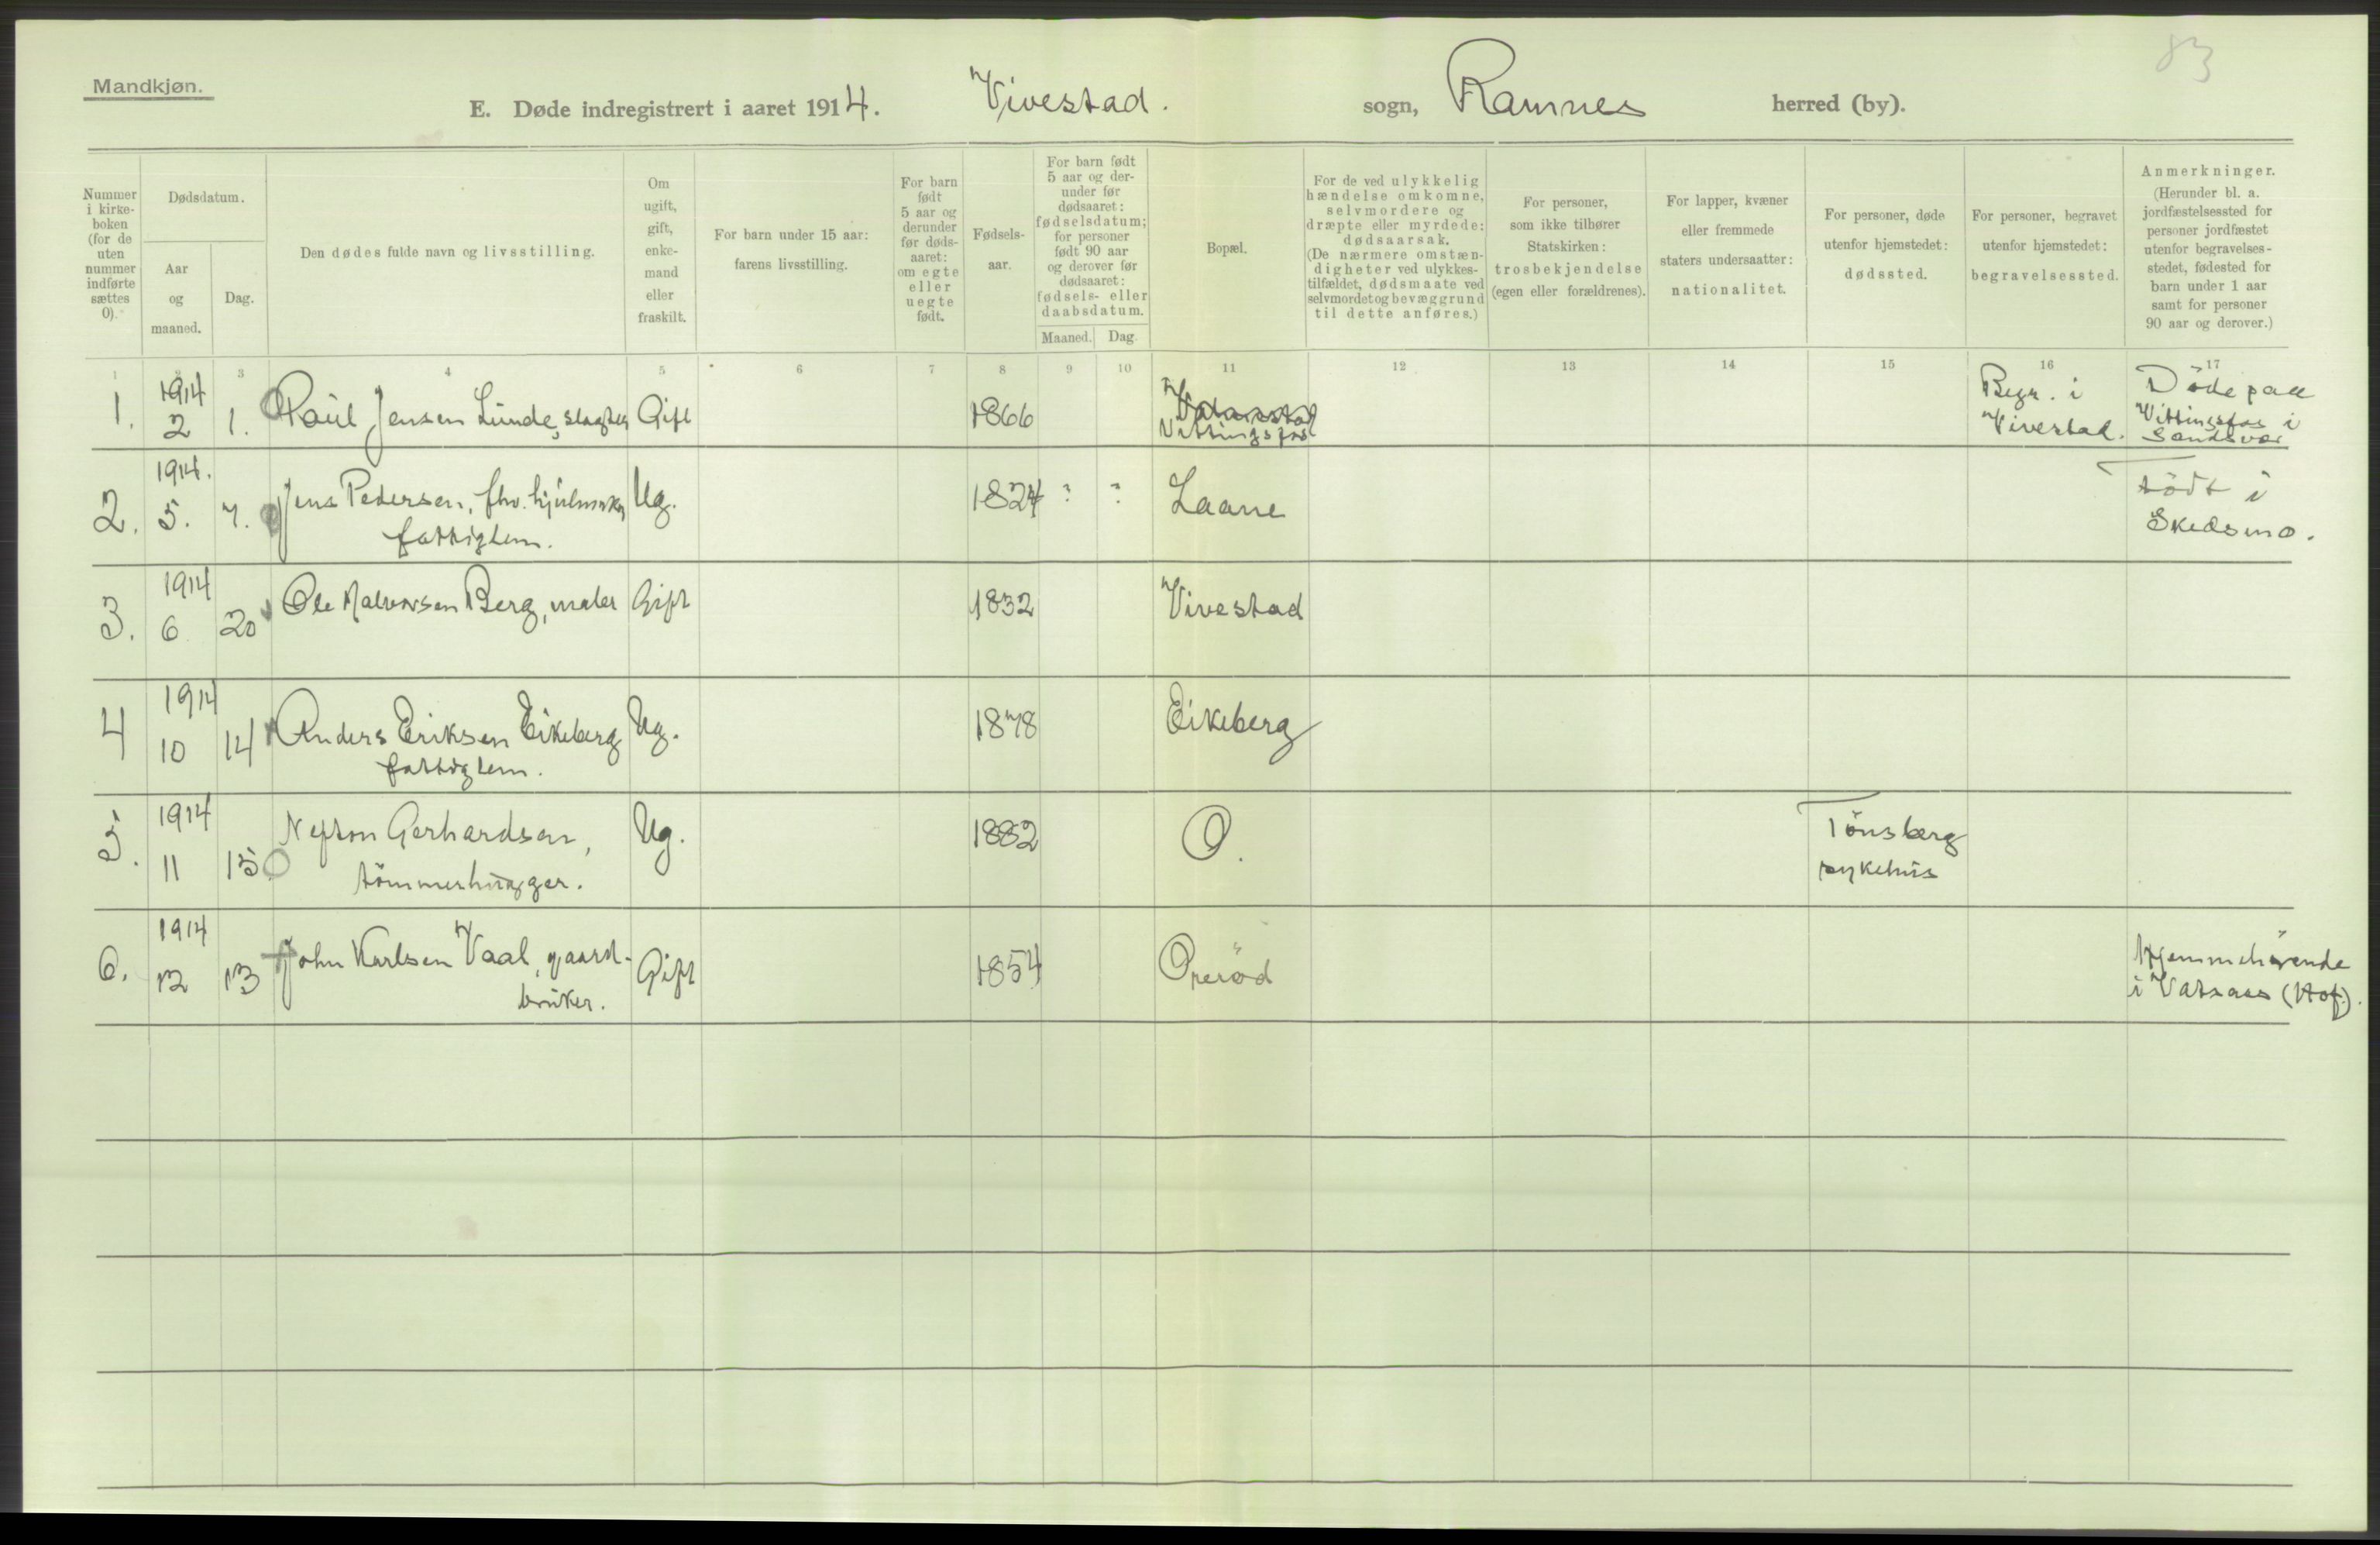 83
Mandkjøn.
E. Døde indregistrert i aaret 1914. Vivestad. sogn, Ramnes herred (by).
Nummer i kirke- boken (for de uten nummer indførte sættes 0).
Dødsdatum.
Aar og maaned.
Dag.
Den dødes fulde navn og livsstilling.
Om ugift, gift, enke- mand eller fraskilt.
For barn under 15 aar: farens livsstilling.
For barn født 5 aar og derunder før døds- aaret: om egte eller uegte født.
Fødsels- aar.
For barn født 5 aar og der- under før dødsaaret: fødselsdatum; for personer født 90 aar og derover før dødsaaret: fødsels- eller daabsdatum.
Maaned. Dag.
Bopæl.
For de ved ulykkelig hændelse omkomne, selvmordere og dræpte eller myrdede: dødsaarsak. (De nærmere omstæn- digheter ved ulykkes- tilfældet, dødsmaate ved selvmordet og bevæggrund til dette anføres.)
For personer, som ikke tilhører Statskirken: trosbekjendelse (egen eller forældrenes).
For lapper, kvæner eller fremmede staters undersaatter: nationalitet.
For personer, døde utenfor hjemstedet: dødssted.
For personer, begravet utenfor hjemstedet: begravelsessted.
Anmerkninger. (Herunder bl. a. jordfæstelsessted for personer jordfæstet utenfor begravelses- stedet, fødested for barn under 1 aar samt for personer 90 aar og derover.)
1 2 3 4 5 6 7 8 9 10 11 12 13 14 15 16 17
1. 1914 2 1. Paul Jensen Lunde, slagter Gift 1866 Vittingsfos Begr. i Vivestad. Döde paa Vittingsfos i Sandsvær
2. 1914. 5. 7. Jens Pedersen, fhv. hjulmaker Ug. 1824 ? ? Laane Födt i Skedsmo.
fattiglem.
3. 1914 6 20 Ole Halvorsen Berg, maler Gift 1832 Vivestad
4 1914 10 14 Anders Eriksen Eikeberg Ug. 1878 Eikeberg
fattiglem.
5. 1914 11 15 Gerhardsen, Ug. 1882 O. Tönsberg sykehus
tömmerhugger.
6. 1914 12 13 John Karlsen Vaal, gaard- Gift 1854 Oreröd Hjemmehörende i Vassaas (Hof).
bruker.